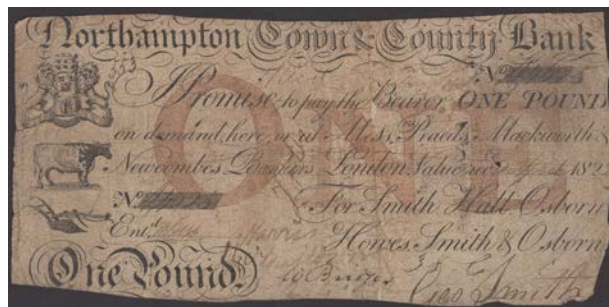 Northampton Town & County Bank
No
I Promise to pay the Bearer ONE POUND
on demand, here, or at Messrs. Praeds, Mackworth &
Newcombes Bankers London. Value recd. 182
No For Smith Hall Osborn
Entd. Howes, Smith & Osborn
One Pound.
Geo Smith
ONE